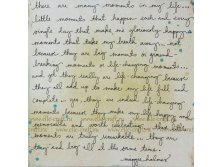 there are many moments in my life...
little moments that happen each and every
single day that make me gloriously happy.
moments that take my breath away... not
because they are big moments or ground
breaking moments or life changing moments...
and yet they really are life changing because
they all add up to make my life full and
complete... yes, they are indeed life changing
moments because they make my life happy and
memorable and worth celebrating... these little
moments are truly remarkable... they are
tiny and big all at the same time.
maggie holmes